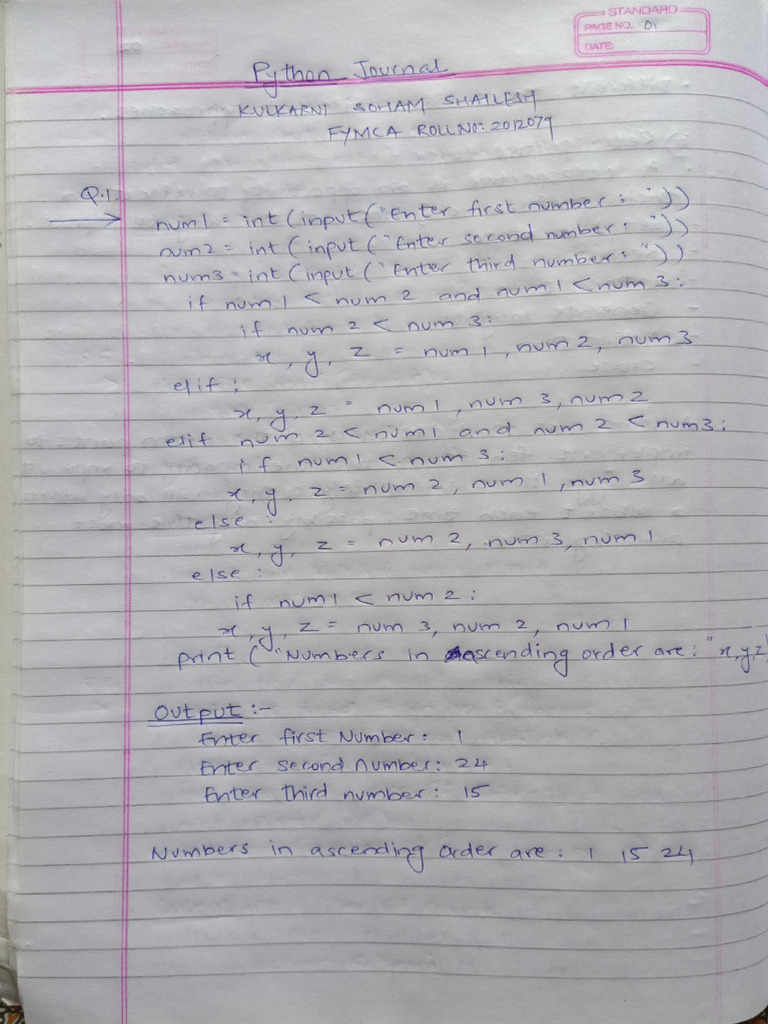 STANDARD
PAGE NO. 01
DATE:
Python Journal
KULKARNI SOHAM SHAILESH
FYMCA ROLL NO: 2012079
Q.1.
num1 = int (input ("Enter first number : "))
num2 = int ( input ( "Enter second number : "))
num3 = int (input ( "Enter third number : "))
if num1 < num 2 and num1 < num 3:
if num 2 < num 3:
x, y, z = num 1, num 2, num 3
elif :
x, y, z = num 1, num 3, num 2
elif num 2 < num1 and num 2 < num3 :
if num1 < num 3 :
x, y, z = num 2, num 1, num 3
else :
x, y, z = num 2, num 3, num 1
else :
if num1 < num 2 :
x, y, z = num 3, num 2, num 1
print ( "Numbers in ascending order are : " x, y, z)
Output :-
Enter first Number : 1
Enter second number : 24
Enter third number : 15
Numbers in ascending order are : 1 15 24